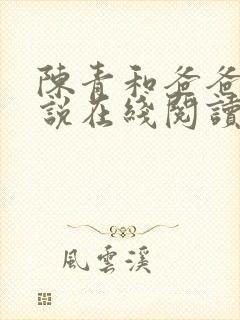 陳青和爸爸
說在綫閱讀
風雲溪